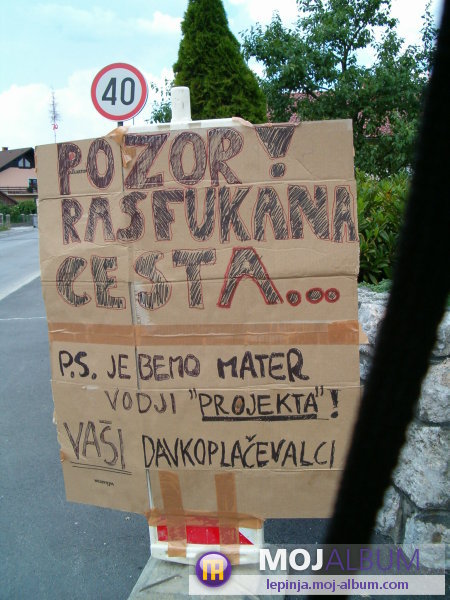 40
POZOR!
RASFUKANA
CESTA...
P.S. JEBEMO MATER
VODJI "PROJEKTA"!
VAŠI DAVKOPLAČEVALCI
MOJALBUM
lepinja.moj-album.com